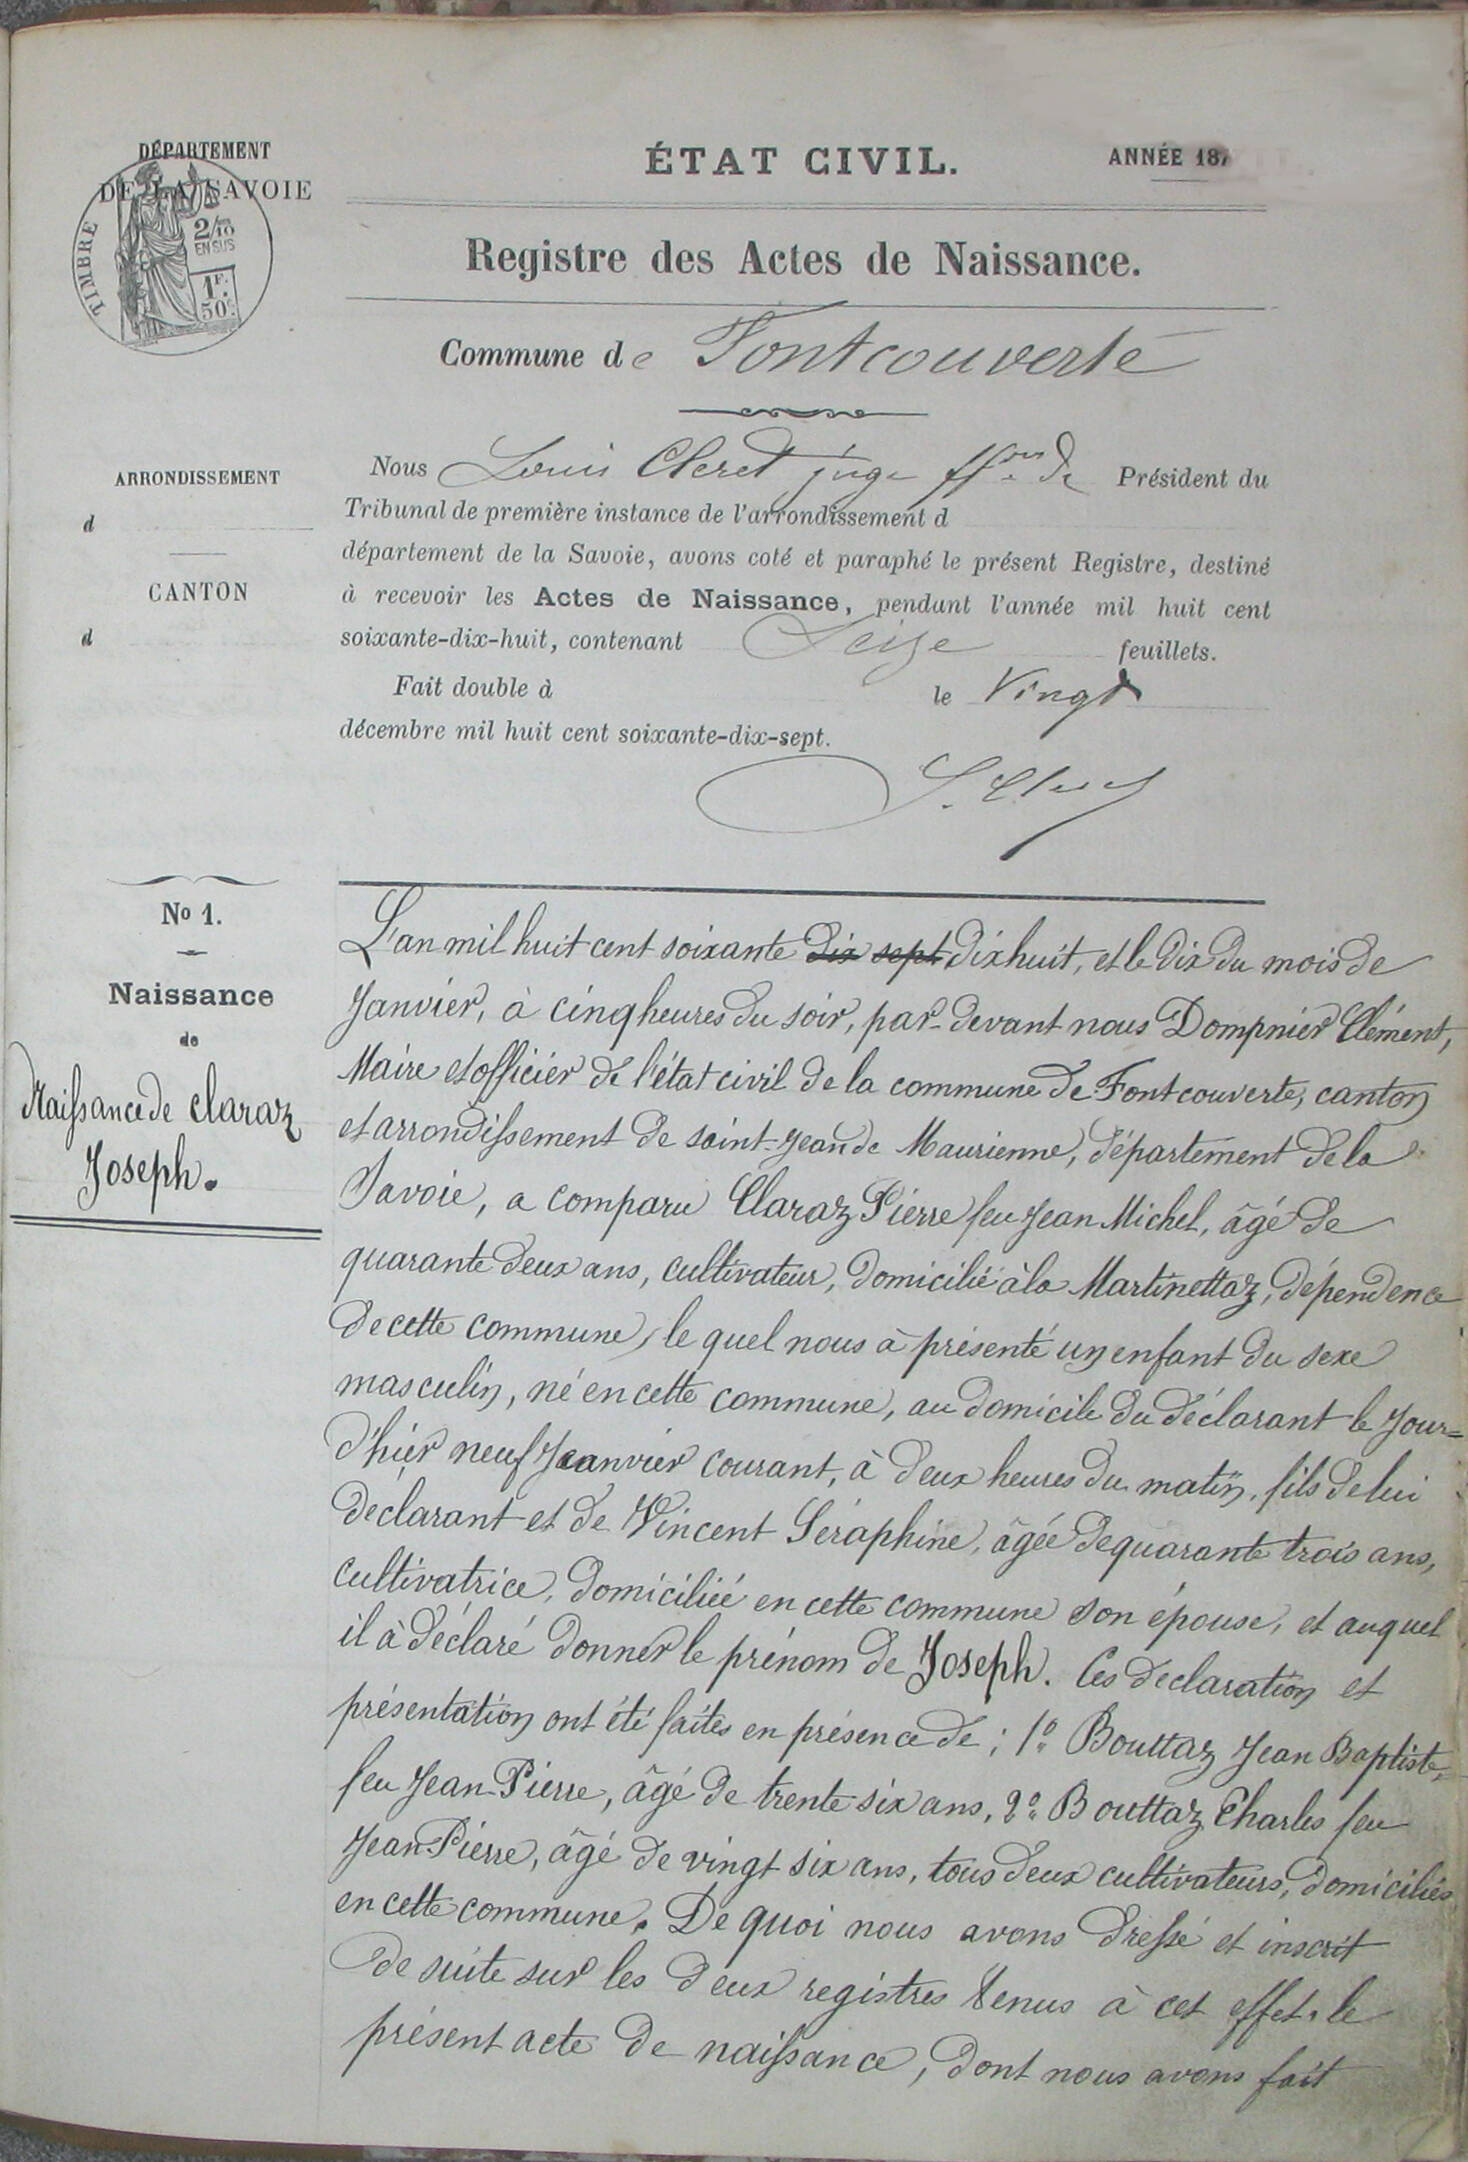 DÉPARTEMENT
DE LA SAVOIE
TIMBRE
2/10
EN SUS
1F.
50c.
ÉTAT CIVIL.
ANNÉE 187
Registre des Actes de Naissance.
Commune de Fontcouverte
ARRONDISSEMENT
d
CANTON
d
Nous Louis Cleret juge ffons de Président du
Tribunal de première instance de l'arrondissement d
département de la Savoie, avons coté et paraphé le présent Registre, destiné
à recevoir les Actes de Naissance, pendant l'année mil huit cent
soixante-dix-huit, contenant Seize feuillets.
Fait double à le Vingt
décembre mil huit cent soixante-dix-sept.
L. Cleret
No 1.
Naissance
de
Naissance de Claraz
Joseph.
L'an mil huit cent soixante dix sept dix huit, et le dix du mois de
Janvier, à cinq heures du soir, par-devant nous Dompnier Clément,
Maire et officier de l'état civil de la commune de Fontcouverte, canton
et arrondissement de saint-Jean de Maurienne, département de la
Savoie, a comparu Claraz Pierre feu Jean Michel, âgé de
quarante deux ans, cultivateur, domicilié à la Martinettaz, dépendence
de cette commune, le quel nous à présenté un enfant du sexe
masculin, né en cette commune, au domicile du déclarant le jour=
d'hier neuf Janvier courant, à deux heures du matin, fils de lui
declarant et de Vincent Séraphine, âgée de quarante trois ans,
cultivatrice, domiciliée en cette commune son épouse, et auquel
il à déclaré donner le prénom de Joseph. Ces declaration et
présentation ont été faites en présence de; 1° Bouttaz Jean Baptiste,
feu Jean-Pierre, âgé de trente six ans, 2° Bouttaz Charles feu
Jean-Pierre, âgé de vingt six ans, tous deux cultivateurs, domiciliés
en cette commune. De quoi nous avons dressé et inscrit
de suite sur les deux registres tenus à cet effet, le
présent acte de naissance, dont nous avons fait